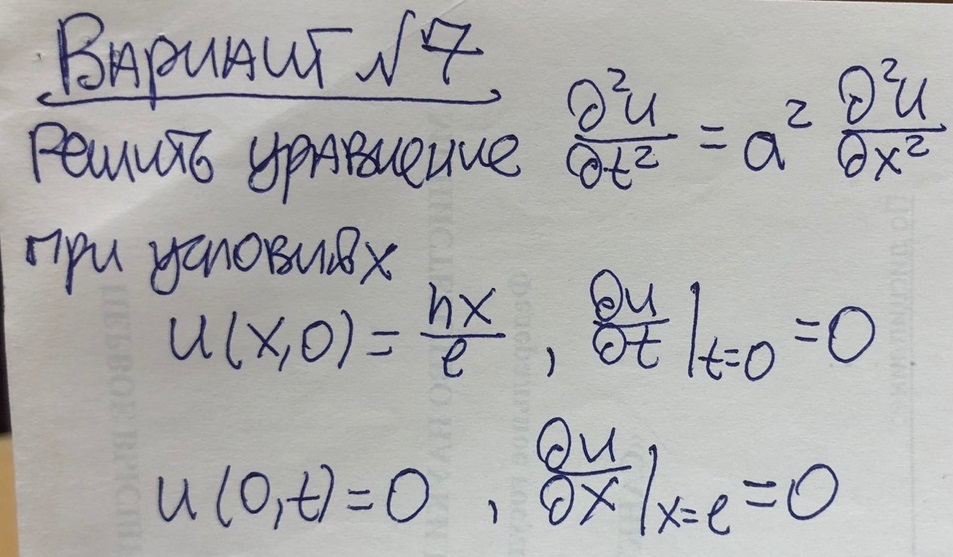 Вариант №7
Решить уравнение ∂²u/∂t² = a² ∂²u/∂x²
при условиях
u(x,0) = hx/l , ∂u/∂t|t=0 = 0
u(0,t) = 0 , ∂u/∂x|x=l = 0